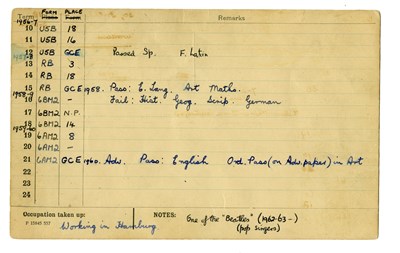 1956-7 FORM PLACE
Term Remarks
10 U5B 18
11 U5B 16
12 U5B GCE Passed Sp. F. Latin
13 RB 3
14 RB 18
15 RB GCE 1958. Pass: E. Lang. Art Maths.
1958-9
16 6BM2 – Fail: Hist. Geog. Scrip. German
17 6BM2 N.P.
18 6BM2 14
1959-60
19 6AM2 8
20 6AM2 –
21 6AM2 GCE 1960. Adv. Pass: English Ord. Pass (on Adv. paper) in Art
22
23
24
Occupation taken up: NOTES: One of the "Beatles" (1962-63-)
Working in Hamburg (pop singers)